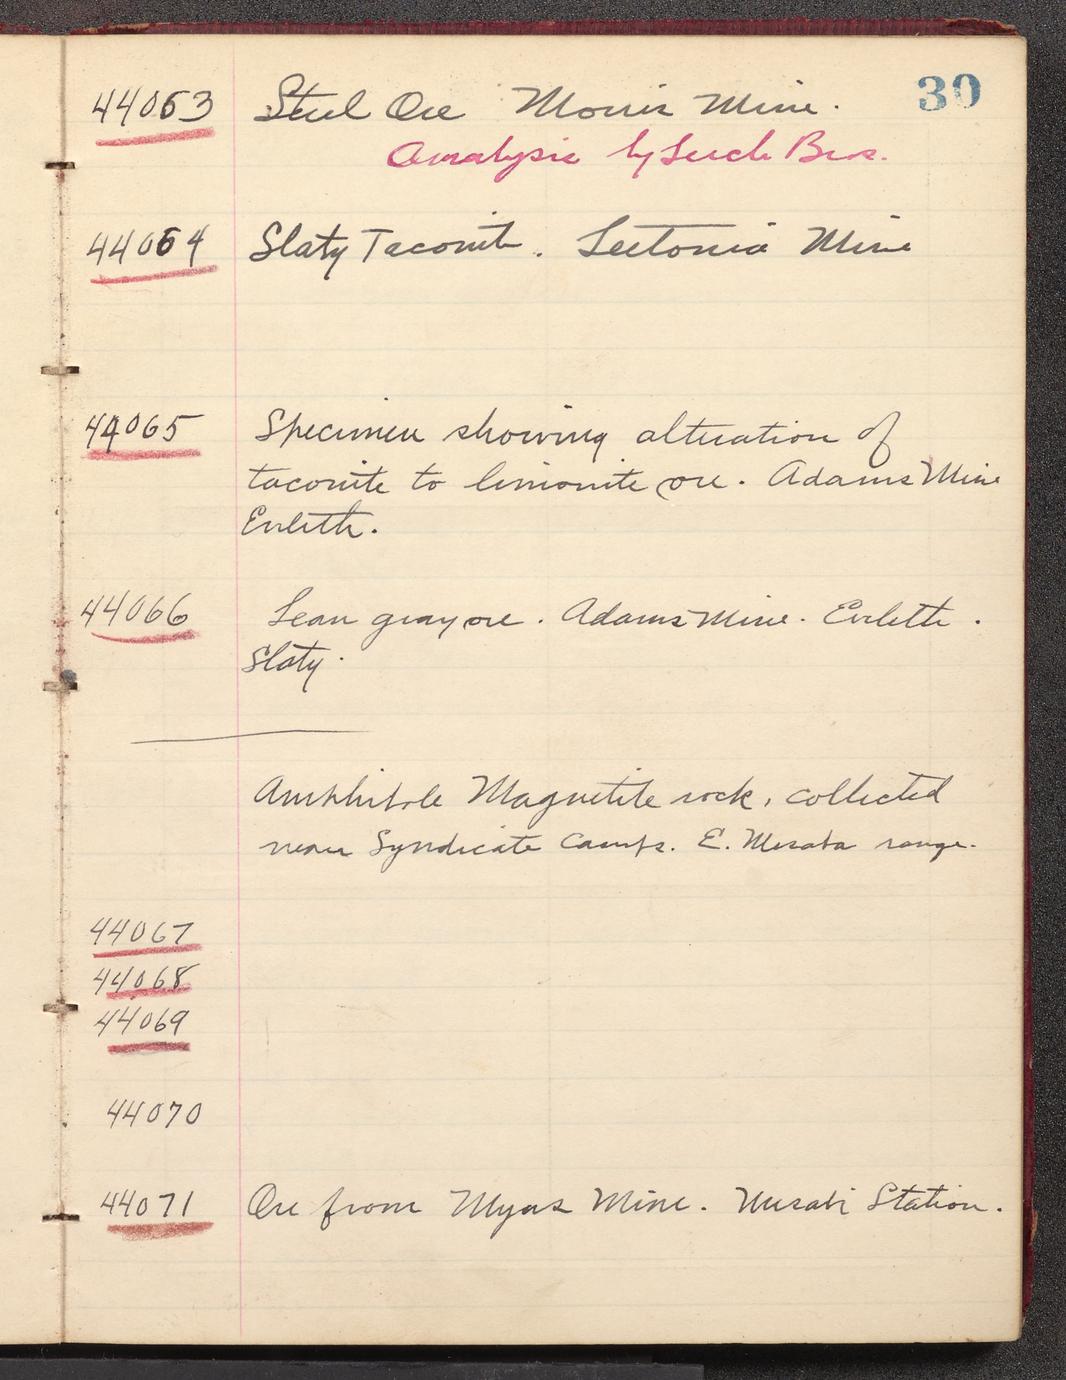 30
44063 Steel Ore Morris Mine.
Analysis by Lerch Bros.
44064 Slaty Taconite. Leetonia Mine
44065 Specimen showing alteration of
taconite to limonite ore. Adams Mine
Eveleth.
44066 Lean gray ore. Adams Mine. Eveleth.
Slaty.
Amphibole Magnetite rock, collected
near Syndicate Camps. E. Mesaba range.
44067
44068
44069
44070
44071 Ore from Myers Mine. Mesabi Station.